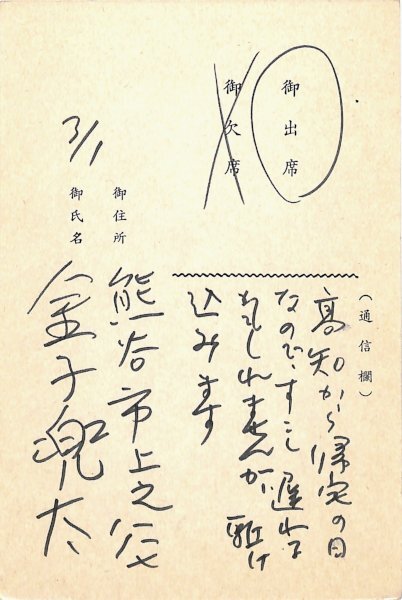 御出席
御欠席
（通信欄）
高知から帰宅の日
なのですこし遅れる
かもしれませんが駈け
込みます
3/1
御住所
熊谷市上之
御氏名
金子兜太